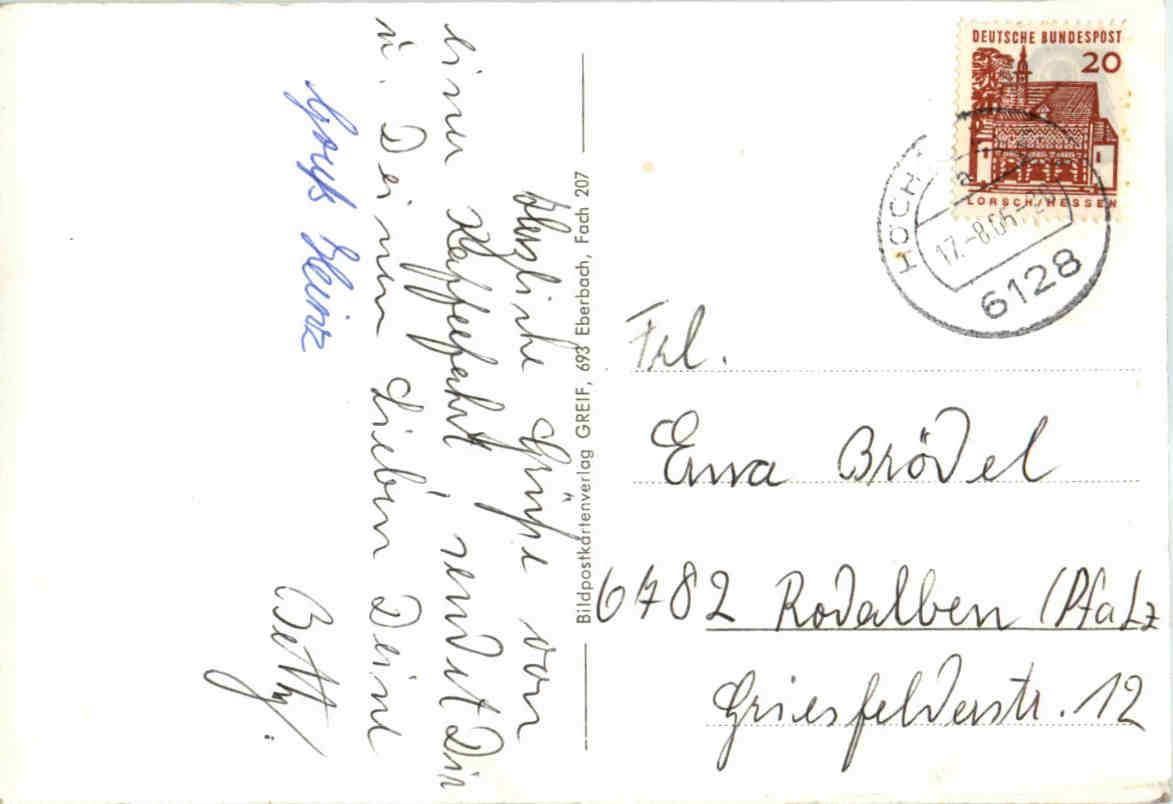 Herzliche Grüße von
einer Kaffeefahrt sendet Dir
u. Deinen Lieben Deine
Betty.
Gruß Heinz
Bildpostkartenverlag GREIF, 693 Eberbach, Fach 207
DEUTSCHE BUNDESPOST
20
LORSCH/HESSEN
HÖCH
a
17.-8.65-20
6128
Frl.
Erna Brödel
6782 Rodalben (Pfalz
Griesfelderstr. 12